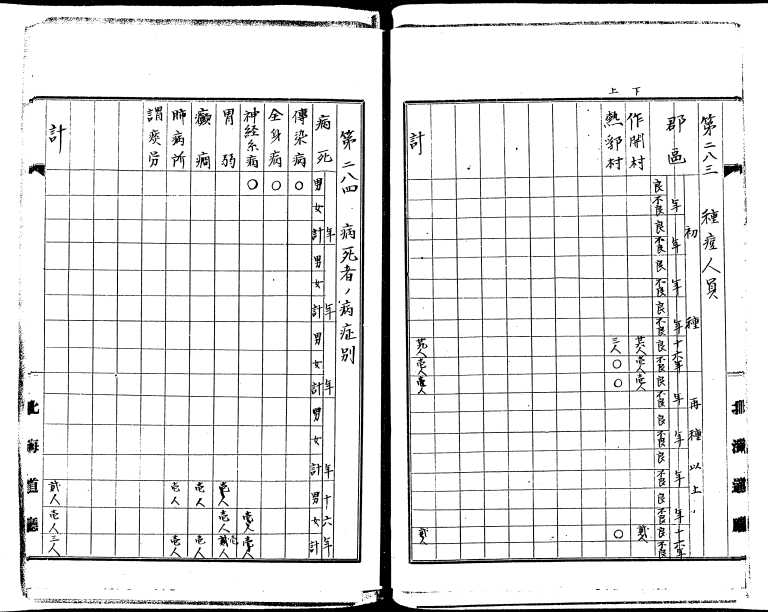 第二八三 種痘人員
郡區
初種
再種以上
年
良
不良
年
良
不良
年
良
不良
年
良
不良
十六年
良
不良
年
良
不良
年
良
不良
年
良
不良
年
良
不良
十六年
良
不良
下
作開村
壱人
壱人
弐人
上
熱郛村
三人
〇
〇
〇
計
壱人
壱人
弐人
北海道廳
第二八四 病死者ノ病症別
病死
男
女
計
年
男
女
計
年
男
女
計
年
男
女
計
年
男
女
計
十六年
傳染病
〇
全身病
〇
神経系病
〇
壱人
壱人
胃弱
壱人
壱人
弐人
癲癇
壱人
壱人
肺病所
壱人
壱人
謂痰労
計
弐人
壱人
三人
北海道廳